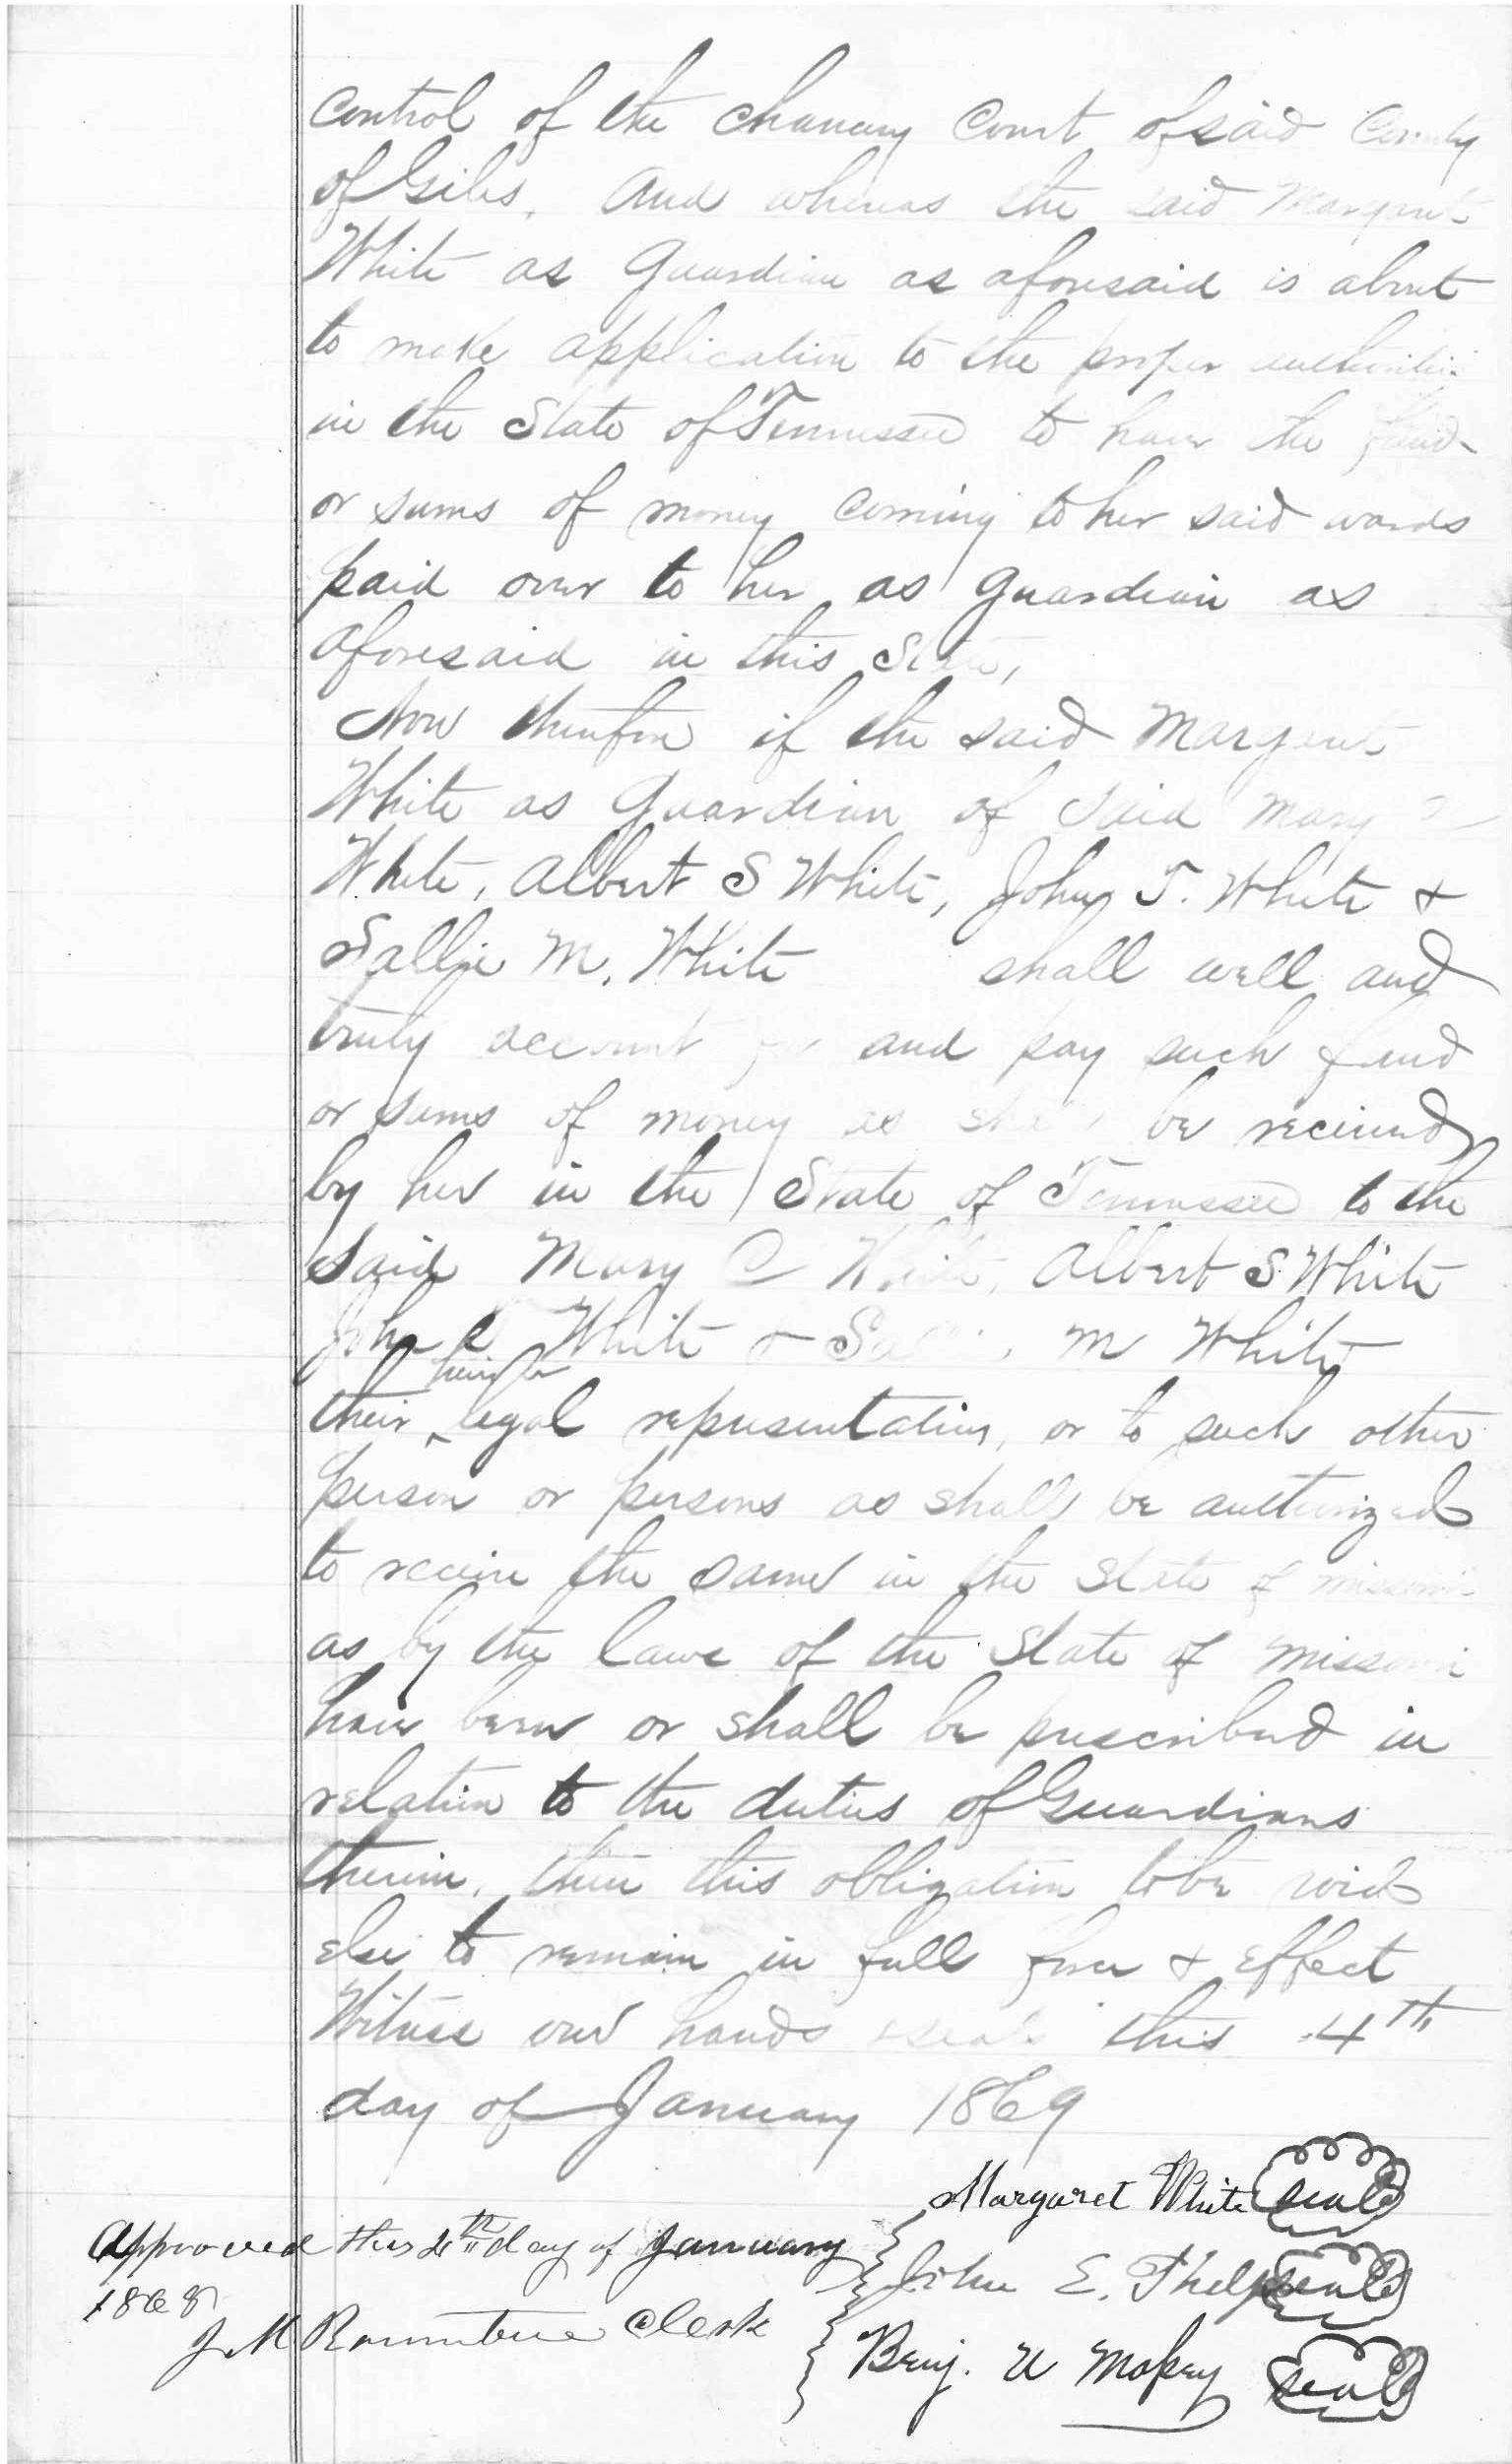 control of the Chancery Court of said County
of Giles, And whereas the said Margaret
White as Guardian as aforesaid is about
to make application to the proper authorities
in the State of Tennessee to have the fund
or sums of money coming to her said wards
paid over to her as Guardian as
aforesaid in this State,
Now therefore if the said Margaret
White as Guardian of said Mary
White, Albert S White, John T. White &
Sallie M. White shall well and
truly account for and pay such fund
or sums of money as shall be received
by her in the State of Tennessee to the
said Mary C White, Albert S White
John White & Sallie M White
their heirs or legal representatives, or to such other
person or persons as shall be authorized
to receive the same in the State of Missouri
as by the laws of the State of Missouri
have been or shall be prescribed in
relation to the duties of Guardians
therein, then this obligation to be void
else to remain in full force & effect
Witness our hands & seals this 4th
day of January 1869
Margaret White seal
Approved this 4th day of January
John E. Phelps seal
J. M Rountree Clerk
Benj. U seal